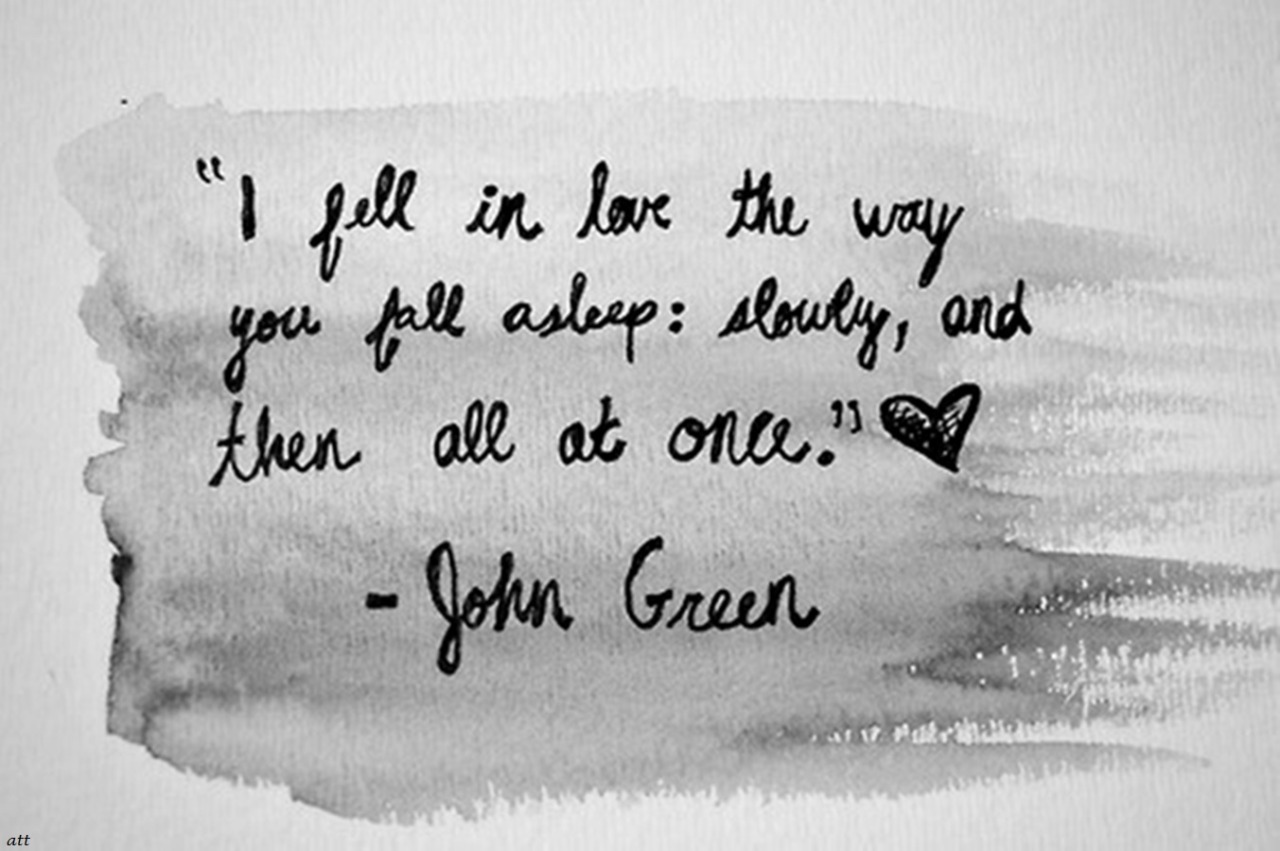 “I fell in love the way
you fall asleep: slowly, and
then all at once.”
- John Green
att